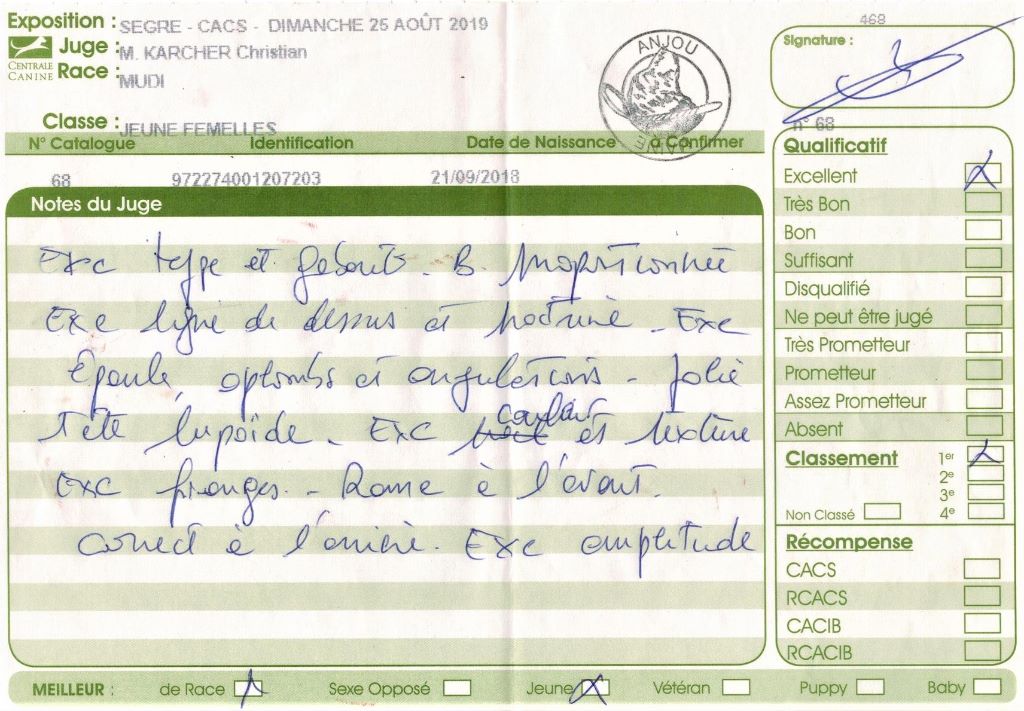 Exposition : SEGRE - CACS - DIMANCHE 25 AOÛT 2019
CENTRALE CANINE
Juge : M. KARCHER Christian
Race : MUDI
Classe : JEUNE FEMELLES
N° Catalogue Identification Date de Naissance à Confirmer
68 972274001207203 21/09/2018
ANJOU
Notes du Juge
Exc type et gabarit. B. proportionnée
Exc ligne de dessus et poitrine. Exc
Epaule, aplombs et angulations - Jolie
Tête lupoïde. Exc couleur et texture
Exc franges. - Rame à l'avant.
correct à l'arrière. Exc amplitude
468
Signature :
n° 68
Qualificatif
Excellent
Très Bon
Bon
Suffisant
Disqualifié
Ne peut être jugé
Très Prometteur
Prometteur
Assez Prometteur
Absent
Classement 1er
2e
3e
Non Classé 4e
Récompense
CACS
RCACS
CACIB
RCACIB
MEILLEUR : de Race Sexe Opposé Jeune Vétéran Puppy Baby